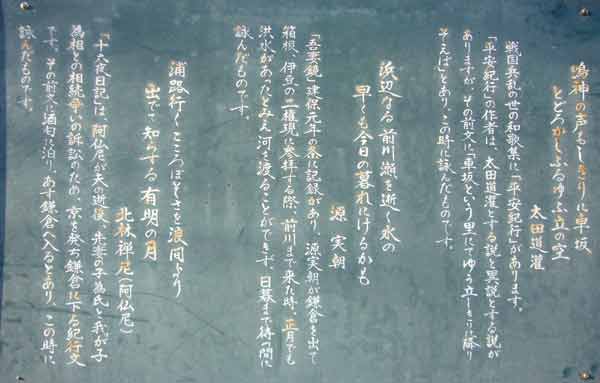 鳴神の声もしきりに車坂
とどろかしふるゆふ立の空
太田道灌
戦国兵乱の世の和歌集に「平安紀行」があります。
「平安紀行」の作者は、太田道灌とする説と異説とする説が
ありますが、その前文に「車坂という里にてゆう立しきりに降り
そえば」とあり、この時に詠んだものです。
浜辺なる前川瀬を逝く水の
早くも今日の暮れにけるかも
源実朝
「吾妻鏡」建保元年の条に記録があり、源実朝が鎌倉を出て
箱根、伊豆の二権現に参拝する際、前川まで来た時、正月でも
洪水があったとみえ河を渡ることができず、日暮まで待つ間に
詠んだものです。
浦路行くこころぼそさを浪間より
出でて知らする有明の月
北林禅尼(阿仏尼)
「十六夜日記」は、阿仏尼が夫の逝後、先妻の子為氏と我が子
為相との相続争いの訴訟のため、京を発ち鎌倉に下る紀行文
です。その前文に酒匂に泊り、あす鎌倉へ入るとあり、この時に
詠んだものです。